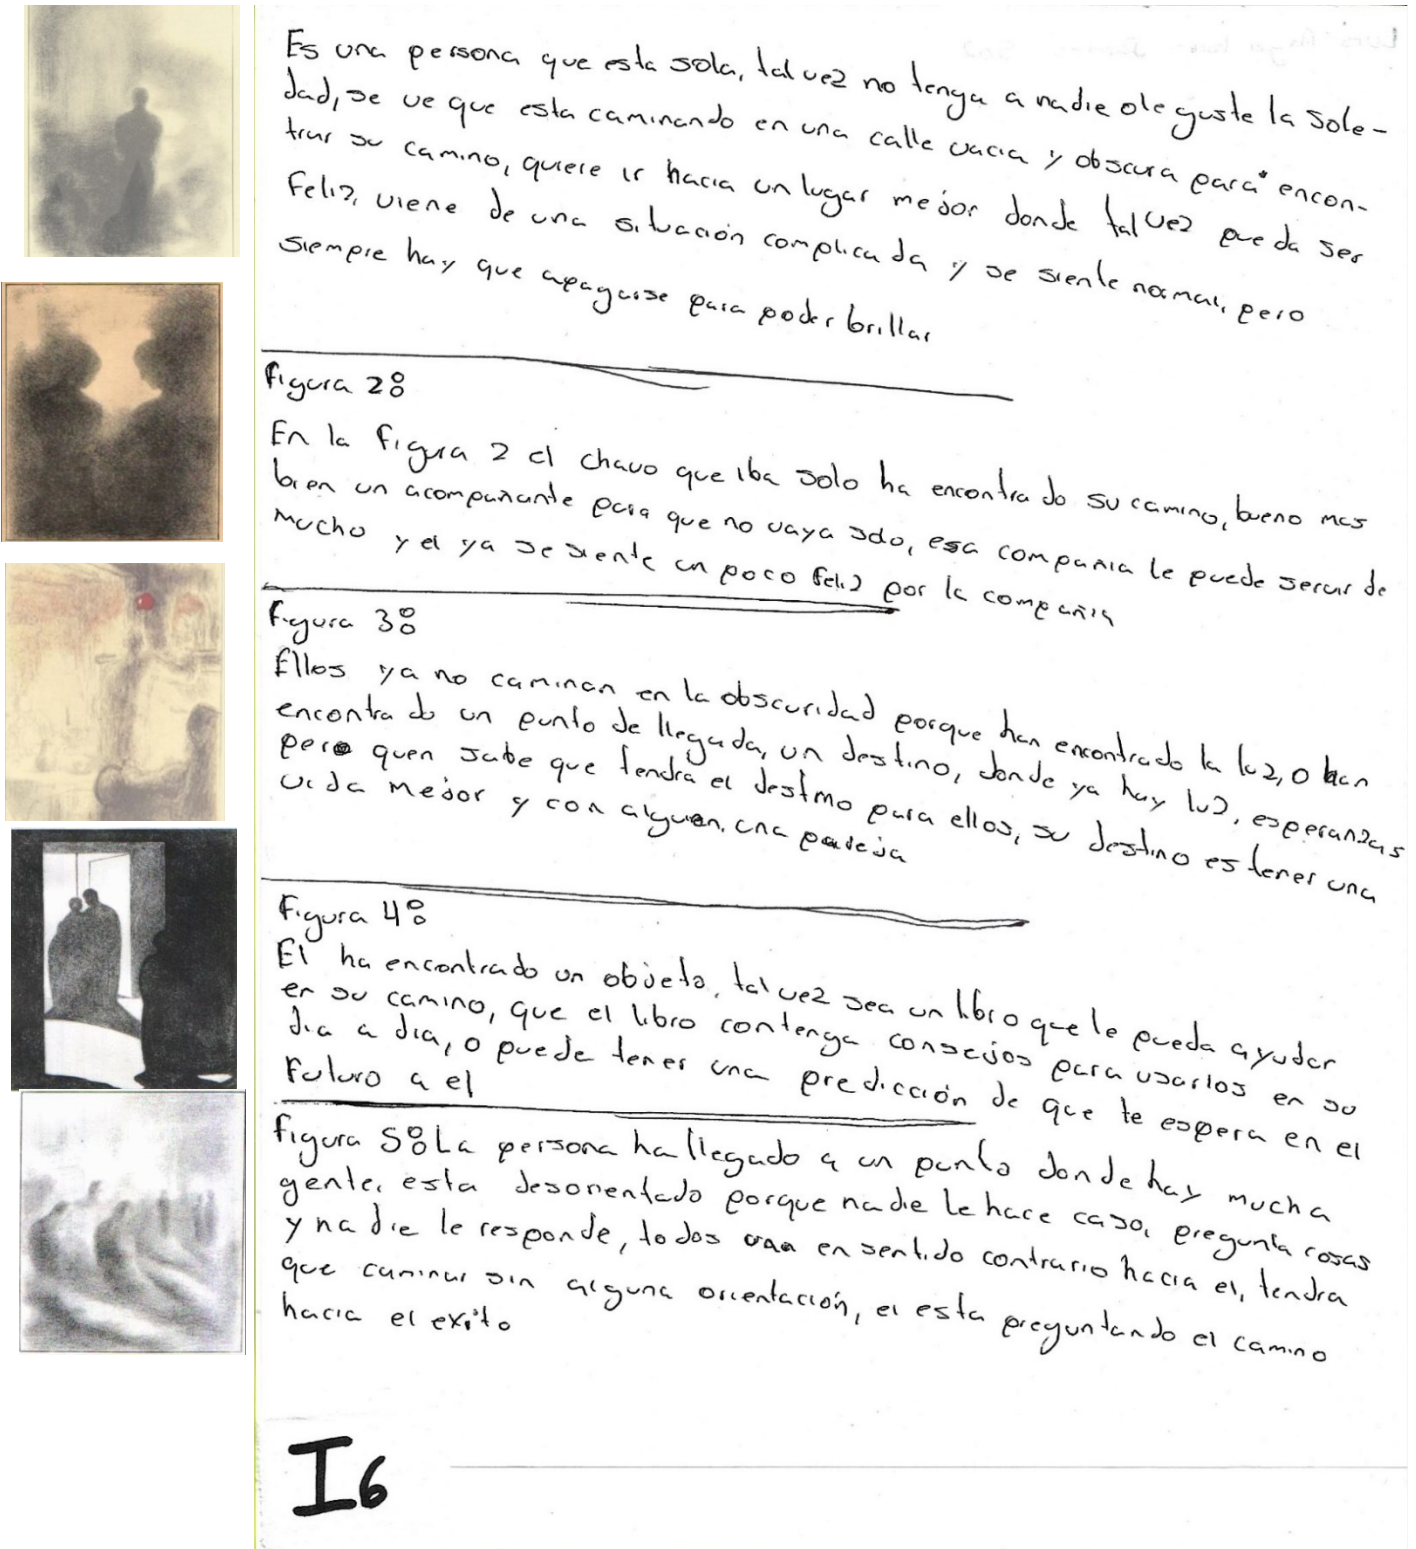 Es una persona que esta sola, tal vez no tenga a nadie o le guste la sole-
dad, se ve que esta caminando en una calle vacia y obscura para encon-
trar su camino, quiere ir hacia un lugar mejor donde tal vez pueda ser
feliz, viene de una situación complicada y se siente normal, pero
siempre hay que apagarse para poder brillar
figura 2:
En la figura 2 el chavo que iba solo ha encontrado su camino, bueno mas
bien un acompañante para que no vaya solo, esa compañia le puede servir de
mucho y el ya se siente un poco feliz por la compañia
figura 3:
Ellos ya no caminan en la obscuridad porque han encontrado la luz, o han
encontrado un punto de llegada, un destino, donde ya hay luz, esperanzas
pero quen sabe que tendra el destino para ellos, su destino es tener una
vida mejor y con alguen, una pareja
Figura 4:
El ha encontrado un objeto, tal vez sea un libro que le pueda ayudar
en su camino, que el libro contenga consejos para usarlos en su
dia a dia, o puede tener una predicción de que te espera en el
futuro a el
figura 5: La persona ha llegado a un punto donde hay mucha
gente, esta desorientado porque nadie le hace caso, pregunta cosas
y nadie le responde, todos van en sentido contrario hacia el, tendra
que caminar sin alguna orientación, el esta preguntando el camino
hacia el exito
I6